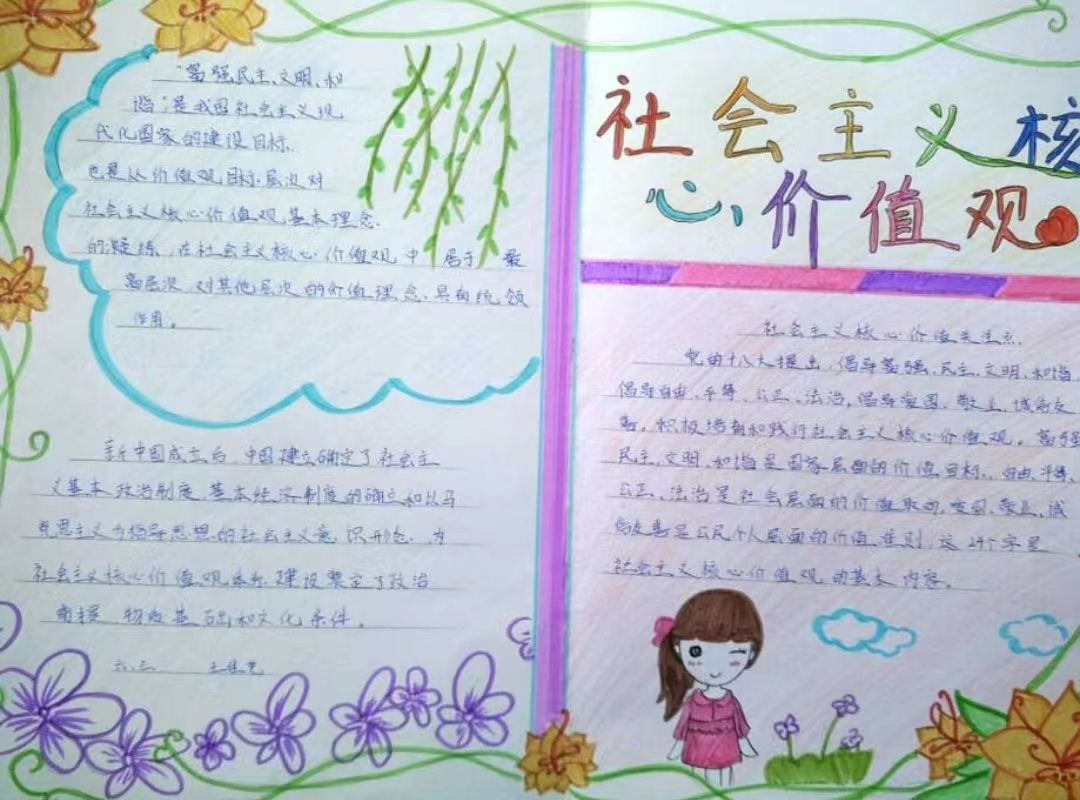 社会主义核
心价值观
“富强民主、文明、和
谐”是我国社会主义现
代化国家的建设目标.
也是从价值观目标层次对
社会主义核心价值观基本理念.
的凝练,在社会主义核心价值观中 居于 最
高层次,对其他层次的价值理念、具有统领
作用。
新中国成立后,中国建立确定了社会主
义基本政治制度,基本经济制度的确立和以马
克思主义为指导思想的社会主义意识形态.为
社会主义核心价值观体系建设奠定了政治
前提 物质基础和文化条件。
六.三 王
社会主义核心价值关注点.
党的十八大提出,倡导富强、民主、文明、和谐,
倡导自由、平等、公正、法治,倡导爱国、敬业、诚信友
善,积极培育和践行社会主义核心价值观。富强
民主、文明、和谐是国家层面的价值目标.自由、平等、
公正、法治是社会层面的价值取向,爱国、敬业、诚
信友善是公民个人层面的价值准则,这24个字是
社会主义核心价值观的基本内容。